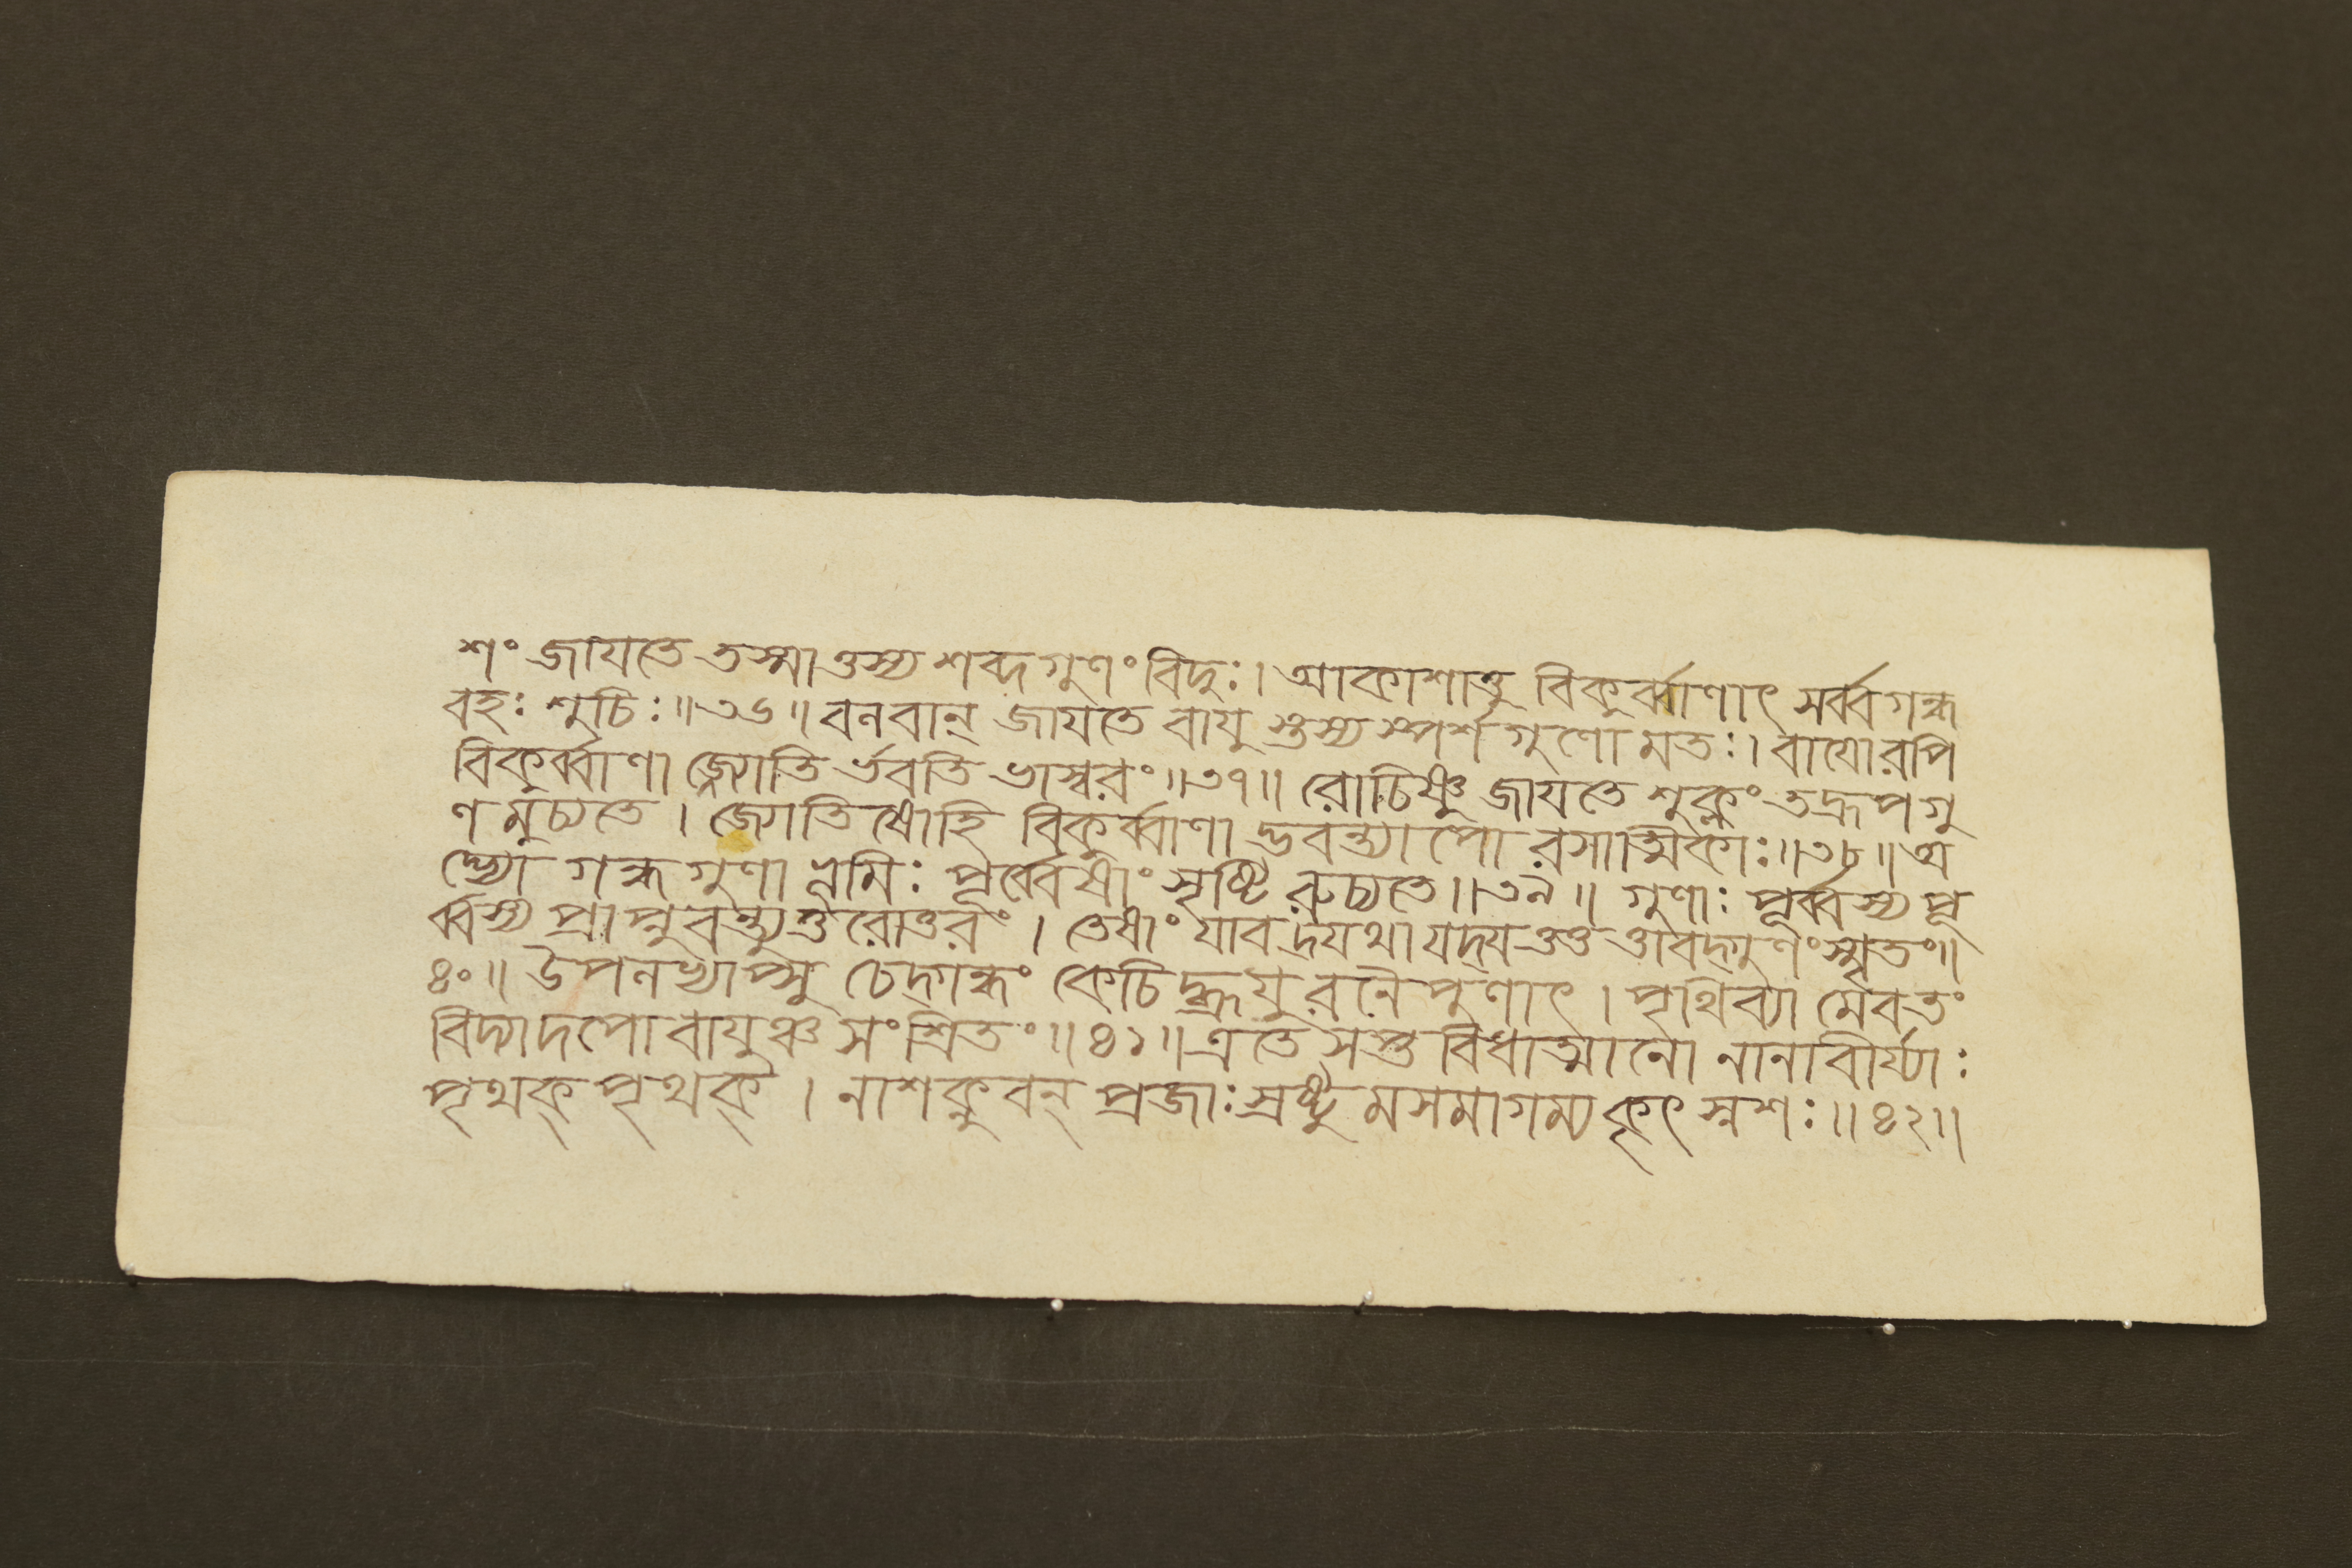 শং জাযতে তস্মাত্তস্য শব্দগুণং বিদুঃ। আকাশাত্তু বিকুর্ব্বাণাৎ সর্ব্বগন্ধ
বহঃ শুচিঃ॥৩৬॥ বলবান্ জাযতে বাযু স্তস্য স্পর্শগুণো মতঃ। বাযোরপি
বিকুর্ব্বাণা জ্জ্যোতি র্ভবতি ভাস্বরং॥৩৭॥ রোচিষ্ণু জাযতে শুক্লং তদ্রূপগু
ণ মুচ্যতে। জ্যোতিষোহি বিকুর্ব্বাণা দ্ভবন্ত্যাপো রসাত্মিকাঃ॥৩৮॥ অ
দ্ভ্যো গন্ধগুণা ভূমিঃ পূর্ব্বেষাং সৃষ্টি রুচ্যতে॥৩৯॥ গুণাঃ পূর্ব্বস্য পূ
র্ব্বস্য প্রাপ্নুবন্ত্যুত্তরোত্তরং। তেষাং যাবদ্যথা যদ্যত্তত্ত তাবদ্গুণং স্মৃতং॥
৪০॥ উপলভ্যাপ্সু চেদ্গন্ধং কেচিদ্ব্রূযুরনৈপুণাৎ। পৃথিব্যা মেবতং
বিদ্যাদপো বাযুঞ্চ সংশ্রিতং॥৪১॥ এতে সপ্তবিধাত্মানো নানাবীর্য্যাঃ
পৃথক্ পৃথক্। নাশক্নুবন্ প্রজাঃ স্রষ্টু মসমাগম্য কৃৎস্নশঃ॥৪২॥